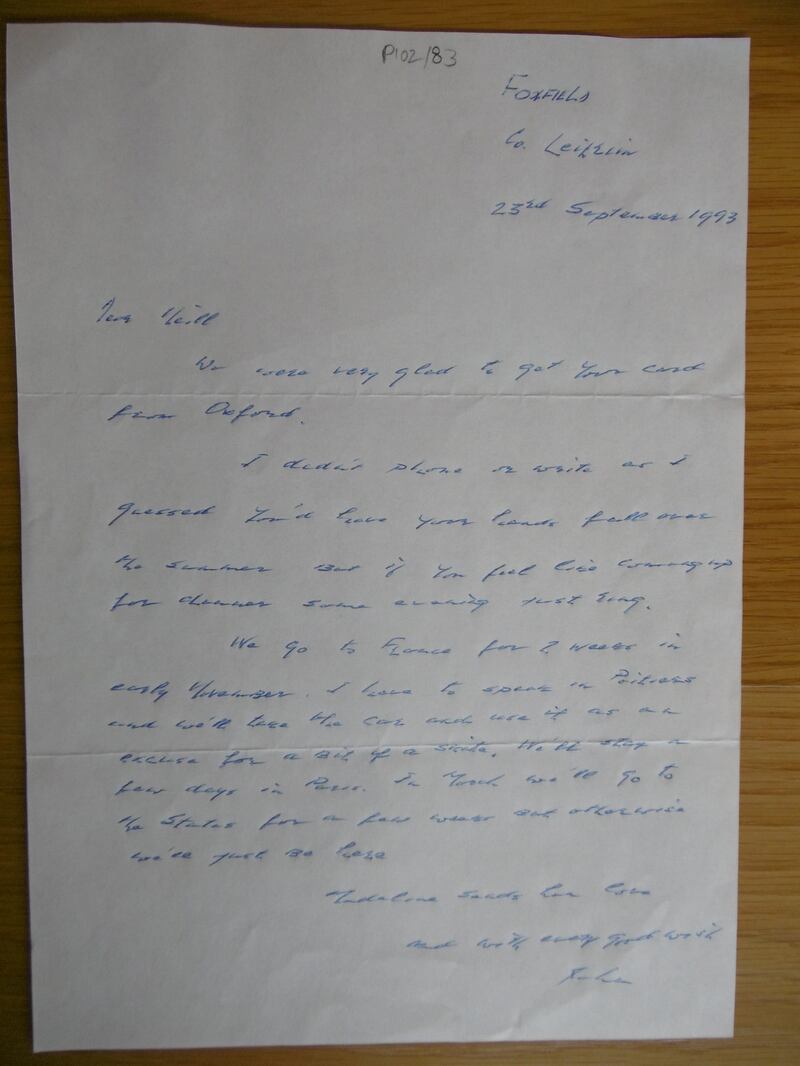 P102/83
FOXFIELD
Co. Leitrim
23rd September 1993
Dear Neill
We were very glad to get your card
from Oxford.
I didn't phone or write as I
guessed you'd have your hands full over
the summer but if you feel like coming up
for dinner some evening just ring.
We go to France for 2 weeks in
early November. I have to speak in Poitiers
and we'll take the car and use it as an
excuse for a bit of a skite. We'll stay a
few days in Paris. In March we'll go to
the States for a few weeks but otherwise
we'll just be here
Madeline sends her love
and with every good wish
John